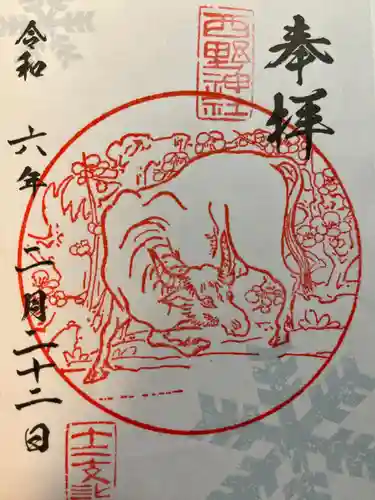 奉拝
西野神社
令和 六年 二月二十二日
十二支詣